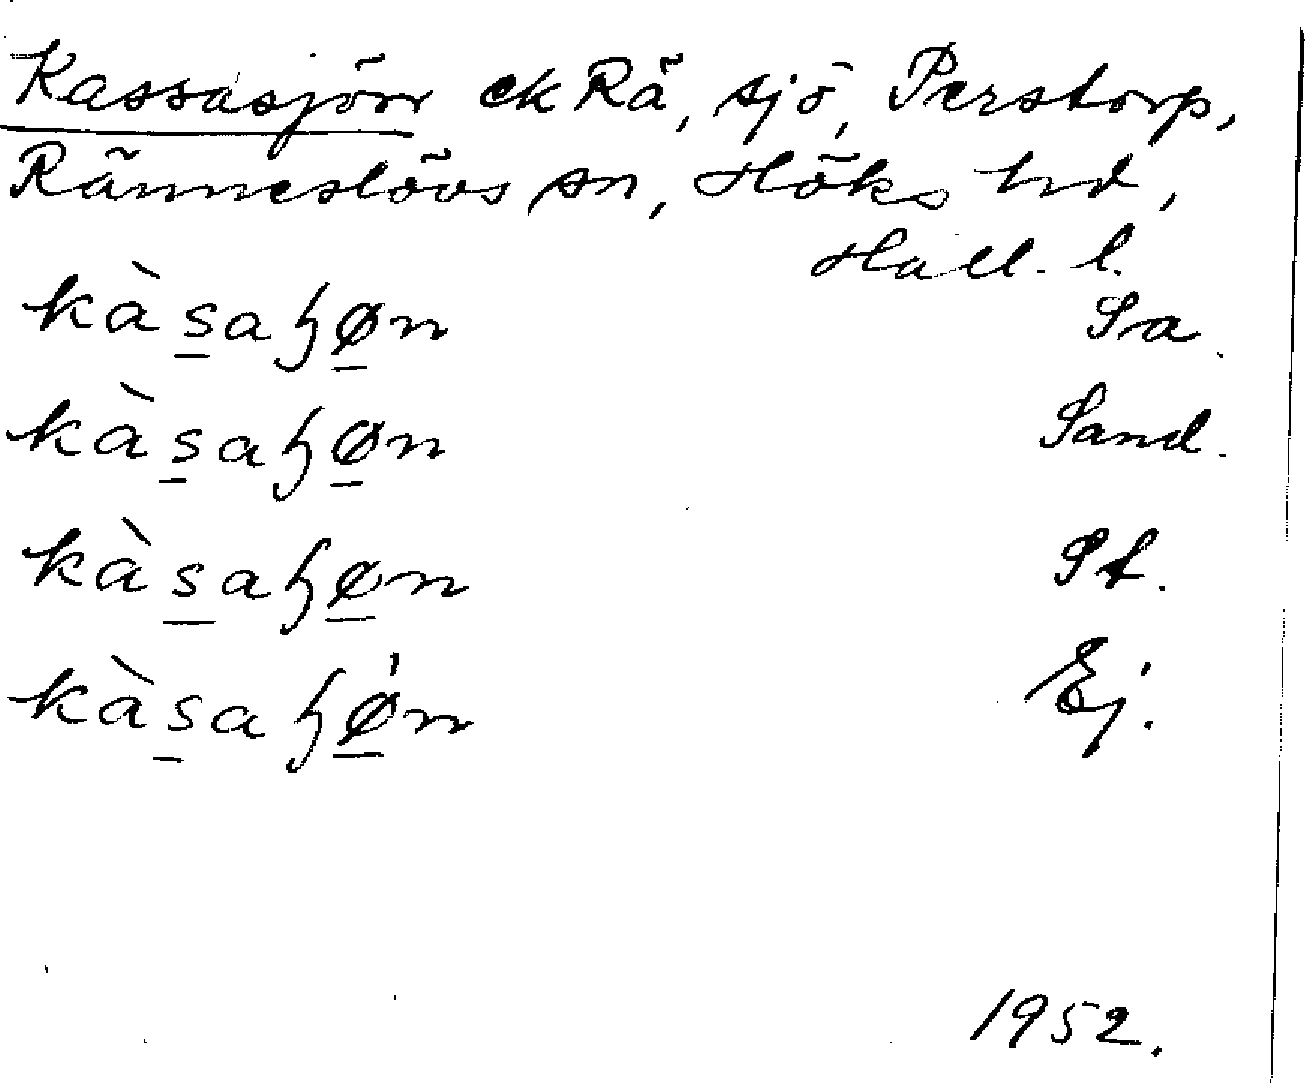 Kassasjön ekRä, sjö, Perstorp,
Ränneslövs sn, Höks hd,
Hall. l.
kàs̲aɧø̲n Sa.
kàs̲aɧø̲n Sand.
kàs̲aɧø̲n Pt.
kàs̲aɧǿ̲n Ej.
1952.